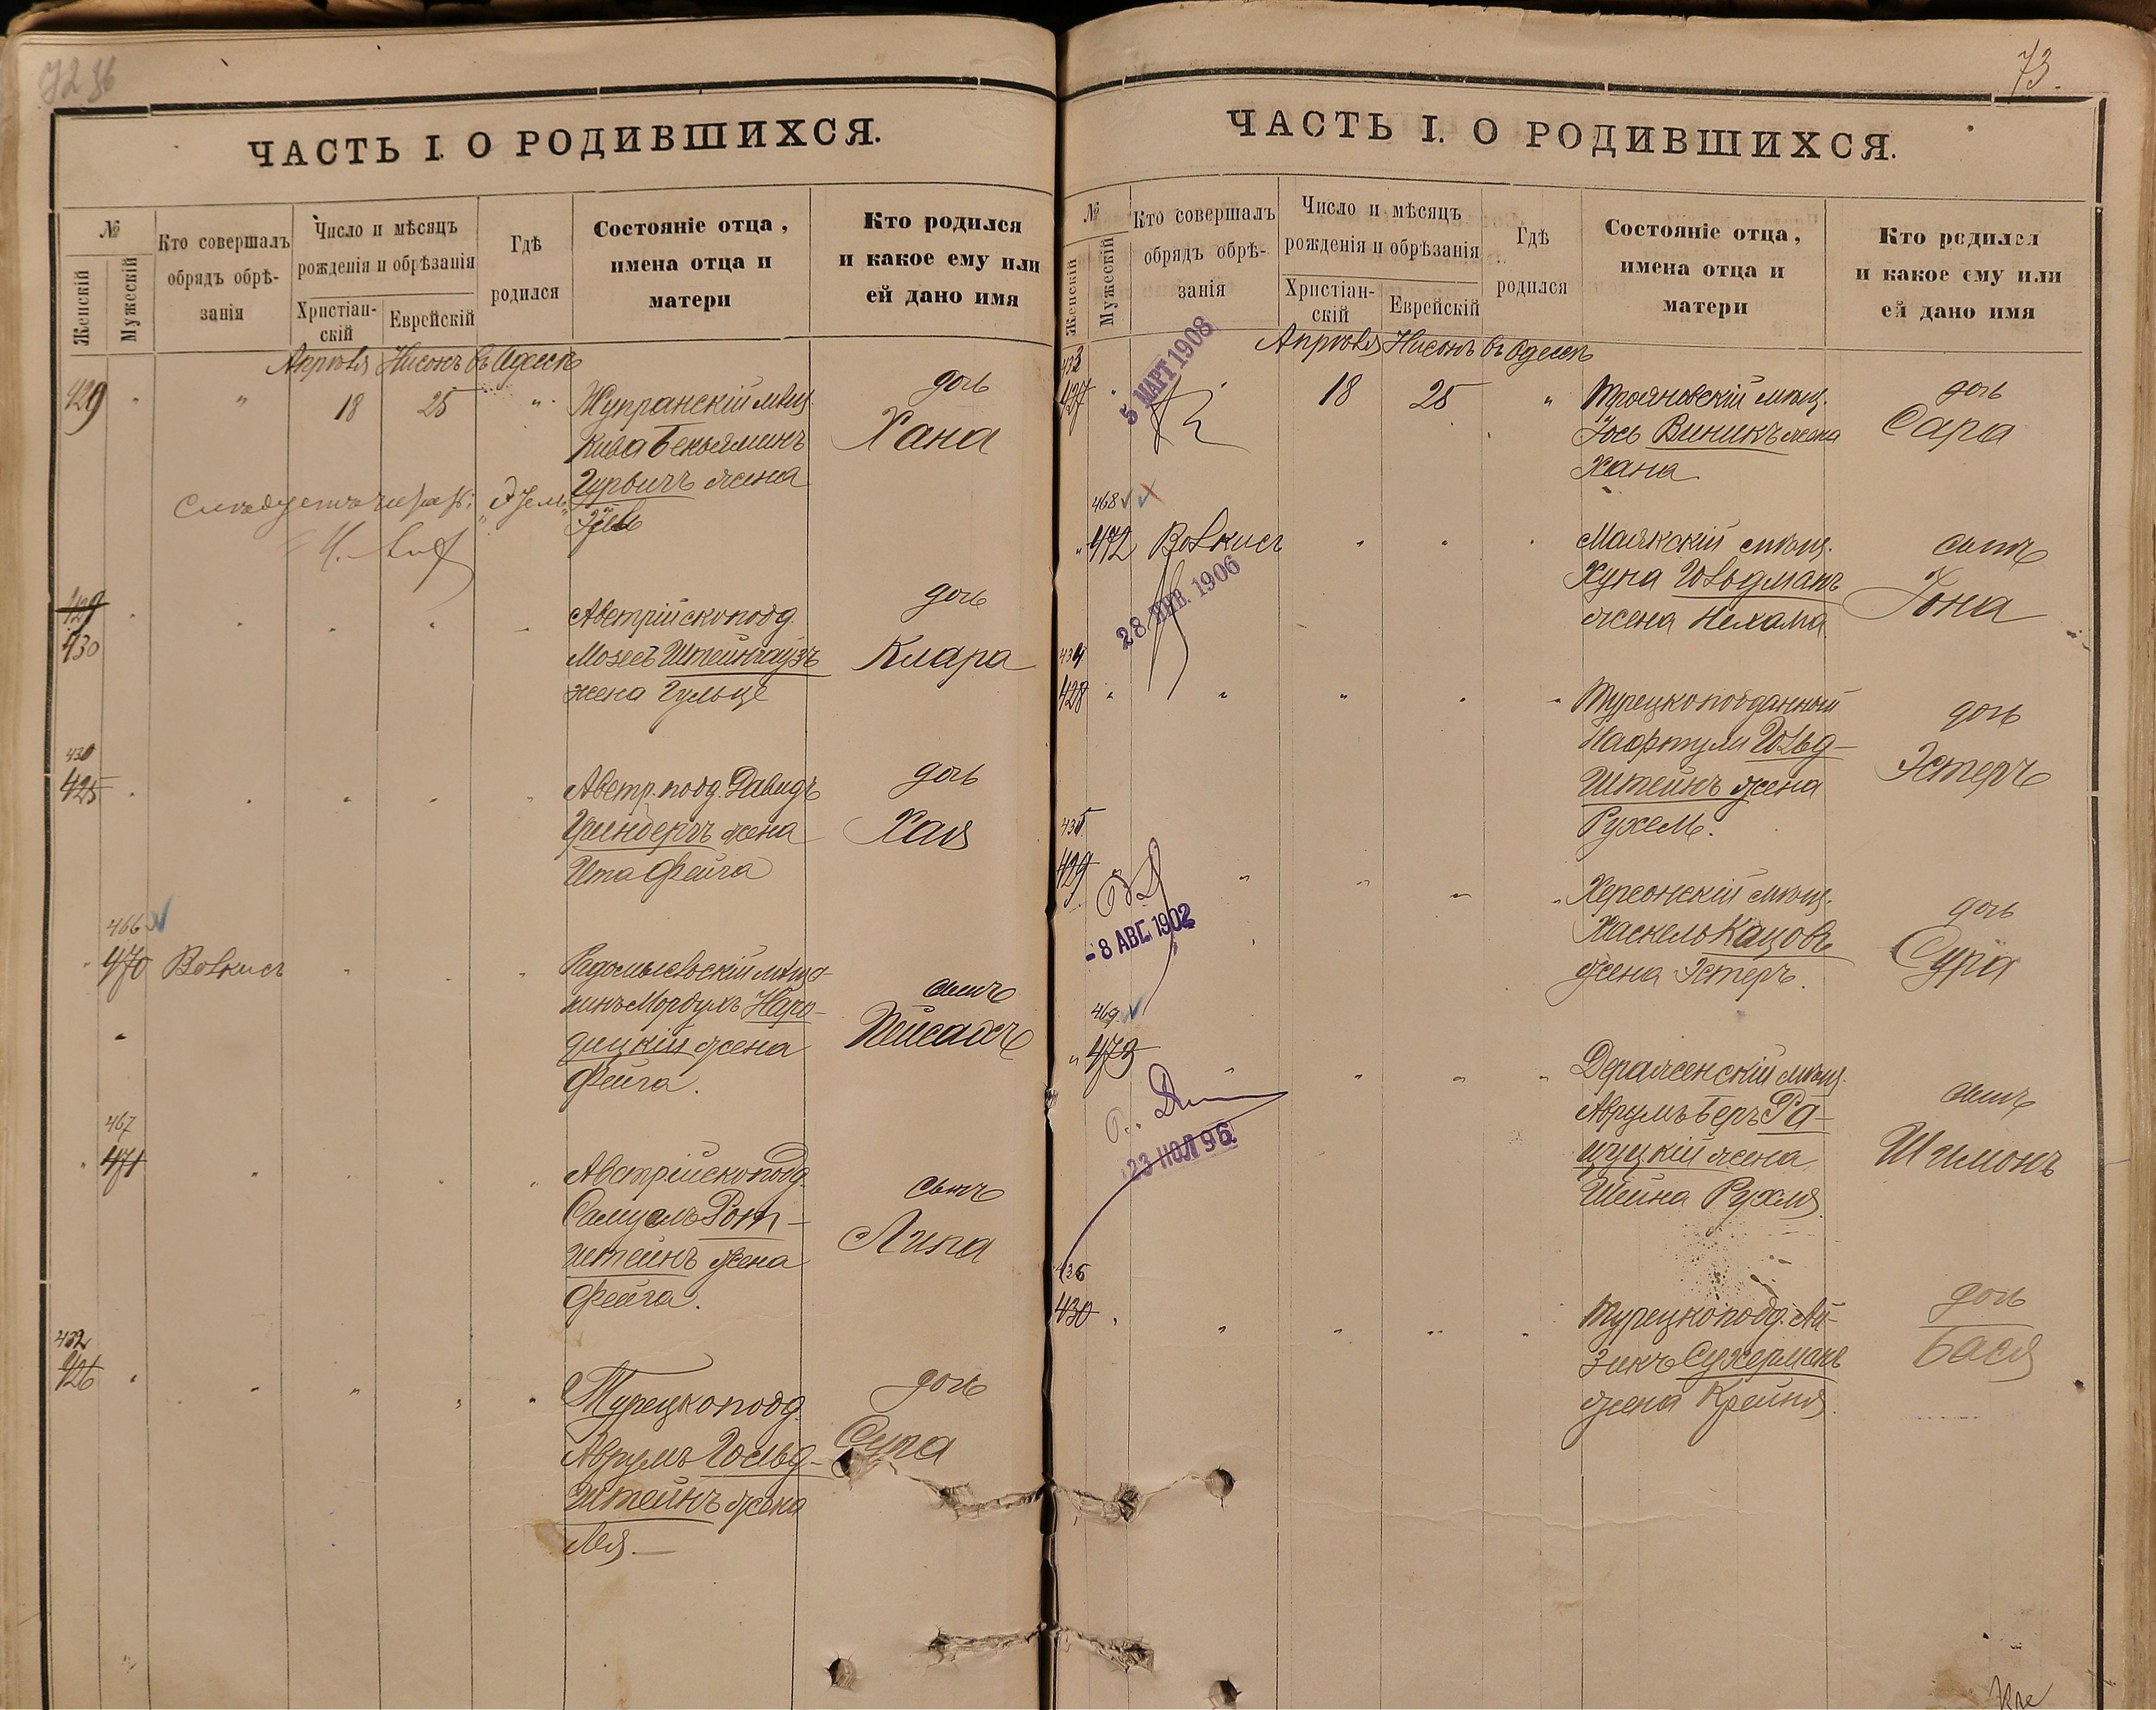 73.
ЧАСТЬ I. О РОДИВШИХСЯ.
№
Женскій
Мужескій
Кто совершалъ
обрядъ обрѣ-
занія
Число и мѣсяцъ
рожденія и обрѣзанія
Христіан-
скій
Еврейскій
Гдѣ
родился
Состояніе отца,
имена отца и
матери
Кто родился
и какое ему или
ей дано имя
Апрѣля Нисонъ въ Одессѣ
429 " " 18 25 "
Жупранскій мѣщ.
Кива Беньяминъ
Гурвичъ жена
дочь
Хана
429
430
Австрійскопод.
Мозесъ Штейнгаузъ
жена Гульце
дочь
Клара
425
Австр. подд. Давидъ
жена
Ита Фейга
дочь
Хая
466
470 Волкисъ
Радомысльскій мѣща-
нинъ Мордухъ Наро-
дицкій жена
Фейга.
сынъ
Пейсахъ
467
471
Австрійскоподд.
Самуель Рот-
штейнъ жена
Фейга.
сынъ
Липа
432
426
Турецкоподд.
Аврумъ Гольд-
штейнъ жена
Лея.
дочь
Сура
73.
ЧАСТЬ I. О РОДИВШИХСЯ.
№
Женскій
Мужескій
Кто совершалъ
обрядъ обрѣ-
занія
Число и мѣсяцъ
рожденія и обрѣзанія
Христіан-
скій
Еврейскій
Гдѣ
родился
Состояніе отца,
имена отца и
матери
Кто родился
и какое ему или
ей дано имя
Апрѣля Нисонъ въ Одессѣ
433
427 18 25 "
5 МАРТ 1908
Трояновскій мѣщ.
Іось Виникъ жена
Хана
дочь
Сара
468
472 Волкисъ
28 ЯНВ. 1906
Маякскій мѣщ.
Хуна Гольдманъ
жена Нехама
сынъ
Іона
434
428
Турецкоподданный
Нафтули Гольд-
штейнъ жена
Рухель.
дочь
Эстеръ
435
429
- 8 АВГ. 1902
Херсонскій мѣщ.
Хаскель Кацовъ
жена Эстеръ.
дочь
Сура
469
473
23 ИЮЛ 96
Дераженскій мѣщ.
Аврумъ Беръ Ра-
цуцкій жена
Шейна Рухля.
сынъ
Шимонъ
436
430
Турецкоподд. Ай-
зикъ Сухерманъ
жена Крейня.
дочь
Бася